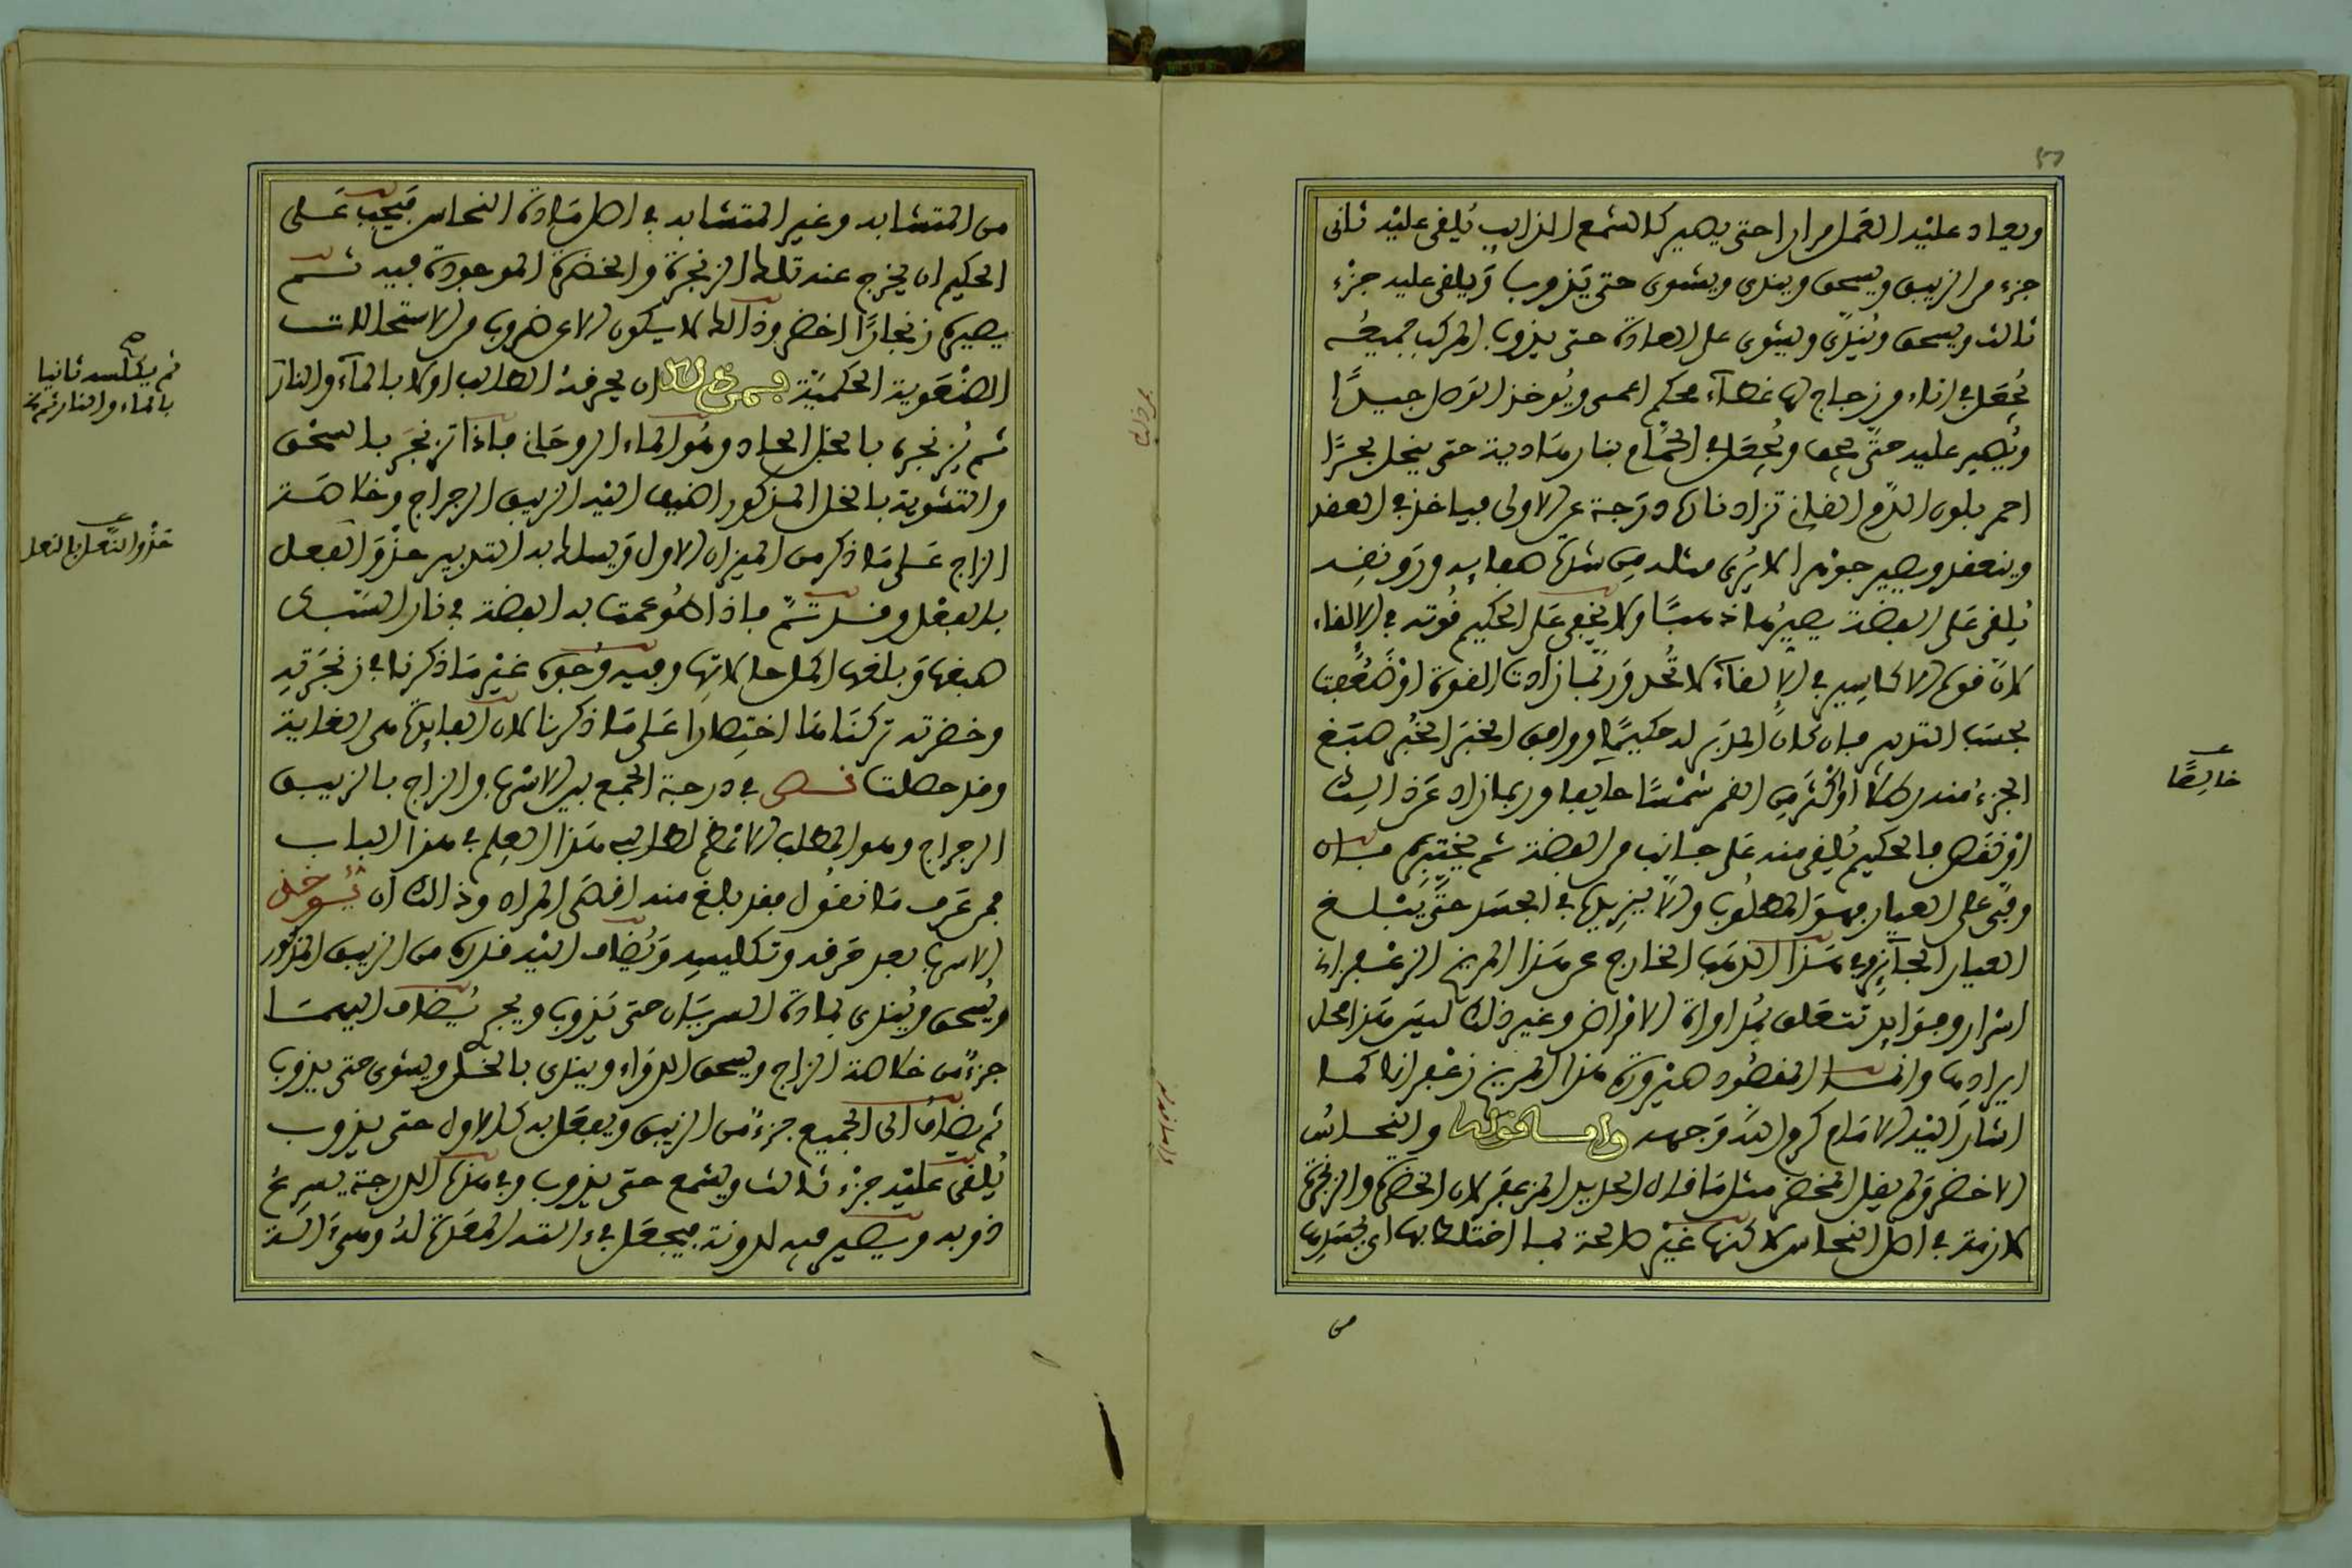 ويعاد عليه العمل مرارا حتى يصير كالشمع الذايب يلقى عليه ثانى
جزء من الزيبق ويسحق ويندى ويشوى حتى يذوب ويلقى عليه جزء
ثالث ويسحق ويندى ويشوى على العادة حتى يذوب المركب جميعه
يجعل في اناء من زجاج له غطاء محكم اعمى ويوخذ الوصل جيدا
ويصبر عليه حتى يجف ويجعل في الحمام بنار هادية حتى ينحل بحرا
احمر بلون الدم القانى تزاد ناره درجة عن الاولى فياخذ في العقد
وينعقد ويصير جوهرا لا يرى مثله من شدة صفايه ورونقه
يلقى على الفضة يصيرها ذهبا ولا يخفى على الحكيم قوته في الالقاء
لان قوة الاكاسير في الالقاء لا تحد وربما زادت القوة او ضعفت
بحسب التدبير فان كان المدبر له حكيما ووافق الخبر الخبر صبغ
الجزء منه رطلا او اكثر من القمر شمسا وربما زاد عن ذلك
او نقص فالحكيم يلقى منه على جانب من الفضة ثم يختبره فان
وفى على العيار فهو المطلوب والا يزيدها في الجسد حتى يبلغ
العيار الجايز وفي هذا الذهب الخارج عن هذا المريخ الزعفرانى
اسرار وفوايد تتعلق بمداواة الامراض وغير ذلك ليس هذا محل
ايرادها وانما المقصود صيرورة هذا المريخ زعفرانا كما
اشار اليه الامام كرم الله وجهه واما قوله والنحاس
الاخضر ولم يقل المخضر مثل ما قال الحديد المزعفر لان الخضرة والزنجرة
لازمة في اصل النحاس لاكنها غير صالحة لما اختلط بها اى بجسدها
من
خالصا
من المتشابه وغير المتشابه في اصل مادة النحاس فيجب على
الحكيم ان يخرج عنه تلك الزنجرة والخضرة الموجودة فيه ثم
يصيره زنجارا اخضر وذلك لا يكون الا عن ضروب من الاستحالات
الصنعوية الحكمية فمن ذلك ان يحرقه الطالب اولا بالماء والنار
ثم يزنجره بالخل الحاد وهو الماء الروحانى فاذا تزنجر بالسحق
والتشوية بالخل المذكور اضيف اليه الزيبق الرجراج وخلاصة
الزاج على ما ذكر من الميزان الاول ويسلك به التدبير حذو الفعل
بالفعل وقد تم فاذا هو عمت به الفضة في نار السبك
صبغها وبلغها اكمل حالاتها وفيه وجوه غير ما ذكرنا في زنجرته
وخضرته تركناها اختصارا على ما ذكرنا لان الفايدة هى الغاية
وقد حصلت فصل في درجة الجمع بين الاسرب والزاج بالزيبق
الرجراج وهو المطلب الاعظم لطالب هذا العلم في هذا الباب
فمن عرف ما نقول فقد بلغ منه اقصى المراد وذلك ان يوخذ
الاسرب بعد حرقه وتكليسه ويضاف اليه قدره من الزيبق المذكور
ويسحق ويندى بمادة السريان حتى يذوب ويجر يضاف اليهما
جزء من خلاصة الزاج ويسحق الدواء ويندى بالخل ويشوى حتى يذوب
ثم يضاف الى الجميع جزء من الزيبق ويفعل به كالاول حتى يذوب
يلقى عليه جزء ثالث ويشمع حتى يذوب وفي هذه الدرجة يسرع
ذوبه ويصير فيه لدونة فيجعل في الالة المعدة له وهى الة
ثم يكلسه ثانيا
بالماء والنار ثم
حذو النعل بالنعل